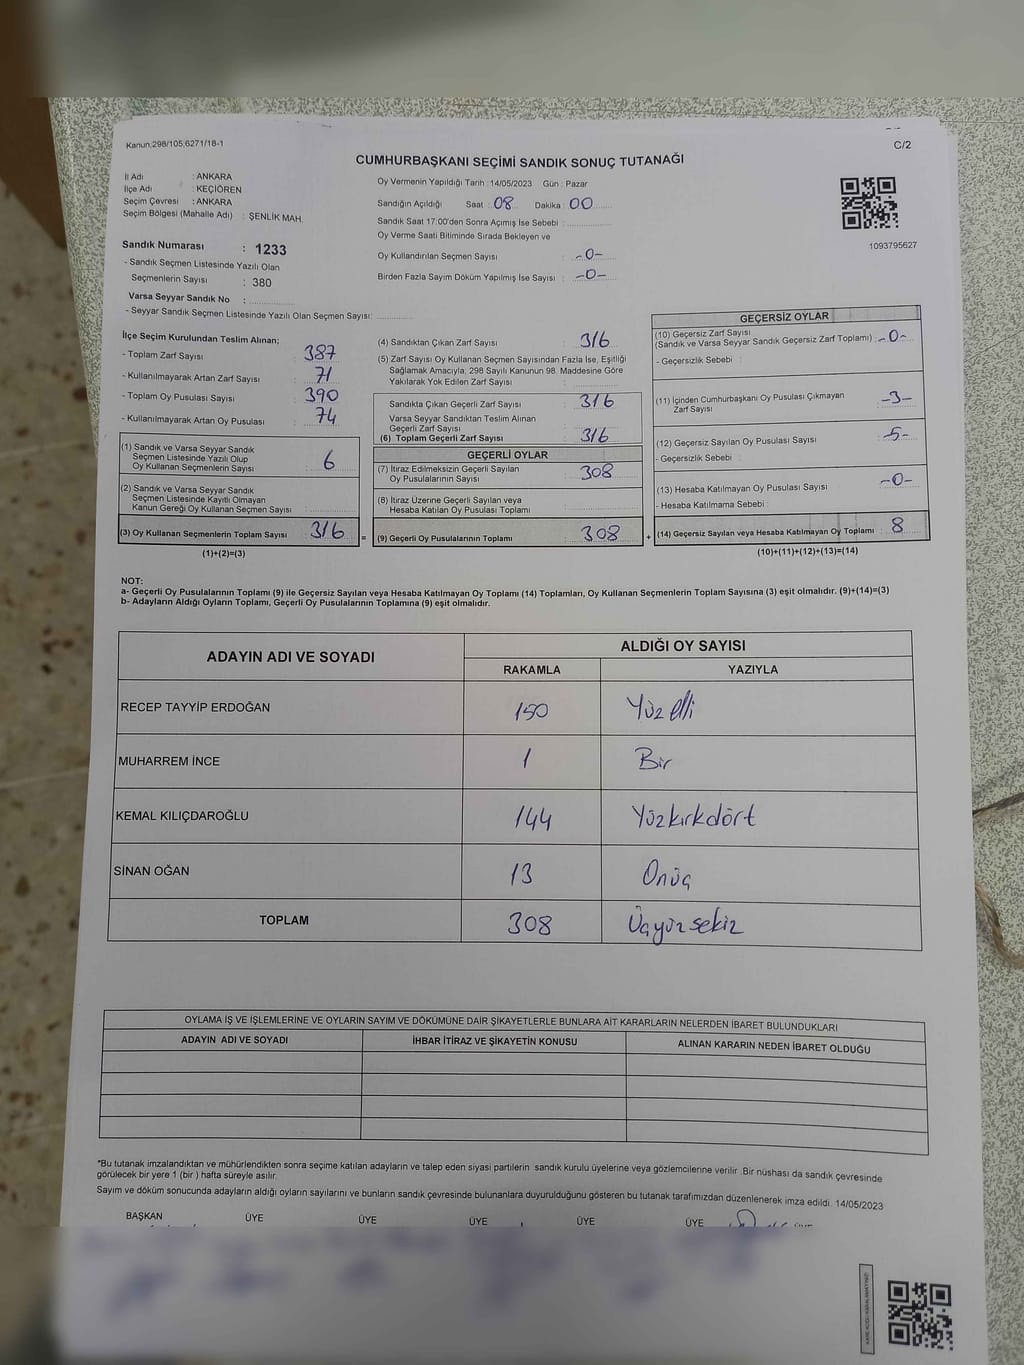 Kanun,298/105,6271/18-1
C/2
CUMHURBAŞKANI SEÇİMİ SANDIK SONUÇ TUTANAĞI
İl Adı : ANKARA
İlçe Adı : KEÇİÖREN
Seçim Çevresi : ANKARA
Seçim Bölgesi (Mahalle Adı) : ŞENLİK MAH.
Sandık Numarası : 1233
- Sandık Seçmen Listesinde Yazılı Olan
Seçmenlerin Sayısı : 380
Varsa Seyyar Sandık No :
- Seyyar Sandık Seçmen Listesinde Yazılı Olan Seçmen Sayısı:
Oy Vermenin Yapıldığı Tarih : 14/05/2023 Gün : Pazar
Sandığın Açıldığı Saat : 08 Dakika : 00
Sandık Saat 17:00'den Sonra Açımış İse Sebebi :
Oy Verme Saati Bitiminde Sırada Bekleyen ve
Oy Kullandırılan Seçmen Sayısı : -0-
Birden Fazla Sayım Döküm Yapılmış İse Sayısı : -0-
1093795627
İlçe Seçim Kurulundan Teslim Alınan;
- Toplam Zarf Sayısı : 387
- Kullanılmayarak Artan Zarf Sayısı : 71
- Toplam Oy Pusulası Sayısı : 390
- Kullanılmayarak Artan Oy Pusulası : 74
(1) Sandık ve Varsa Seyyar Sandık
Seçmen Listesinde Yazılı Olup
Oy Kullanan Seçmenlerin Sayısı : 6
(2) Sandık ve Varsa Seyyar Sandık
Seçmen Listesinde Kayıtlı Olmayan
Kanun Gereği Oy Kullanan Seçmen Sayısı :
(3) Oy Kullanan Seçmenlerin Toplam Sayısı : 316
(1)+(2)=(3)
=
(4) Sandıktan Çıkan Zarf Sayısı : 316
(5) Zarf Sayısı Oy Kullanan Seçmen Sayısından Fazla İse, Eşitliği
Sağlamak Amacıyla, 298 Sayılı Kanunun 98. Maddesine Göre
Yakılarak Yok Edilen Zarf Sayısı :
Sandıkta Çıkan Geçerli Zarf Sayısı : 316
Varsa Seyyar Sandıktan Teslim Alınan
Geçerli Zarf Sayısı :
(6) Toplam Geçerli Zarf Sayısı : 316
GEÇERLİ OYLAR
(7) İtiraz Edilmeksizin Geçerli Sayılan
Oy Pusulalarının Sayısı : 308
(8) İtiraz Üzerine Geçerli Sayılan veya
Hesaba Katılan Oy Pusulası Toplamı :
(9) Geçerli Oy Pusulalarının Toplamı : 308
+
GEÇERSİZ OYLAR
(10) Geçersiz Zarf Sayısı
(Sandık ve Varsa Seyyar Sandık Geçersiz Zarf Toplamı) : -0-
- Geçersizlik Sebebi :
(11) İçinden Cumhurbaşkanı Oy Pusulası Çıkmayan
Zarf Sayısı : -3-
(12) Geçersiz Sayılan Oy Pusulası Sayısı : -5-
- Geçersizlik Sebebi :
(13) Hesaba Katılmayan Oy Pusulası Sayısı : -0-
- Hesaba Katılmama Sebebi :
(14) Geçersiz Sayılan veya Hesaba Katılmayan Oy Toplamı : 8
(10)+(11)+(12)+(13)=(14)
NOT:
a- Geçerli Oy Pusulalarının Toplamı (9) ile Geçersiz Sayılan veya Hesaba Katılmayan Oy Toplamı (14) Toplamları, Oy Kullanan Seçmenlerin Toplam Sayısına (3) eşit olmalıdır. (9)+(14)=(3)
b- Adayların Aldığı Oyların Toplamı, Geçerli Oy Pusulalarının Toplamına (9) eşit olmalıdır.
ADAYIN ADI VE SOYADI ALDIĞI OY SAYISI
RAKAMLA YAZIYLA
RECEP TAYYİP ERDOĞAN 150 Yüz elli
MUHARREM İNCE 1 Bir
KEMAL KILIÇDAROĞLU 144 Yüzkırkdört
SİNAN OĞAN 13 Onüç
TOPLAM 308 Üçyüz sekiz
OYLAMA İŞ VE İŞLEMLERİNE VE OYLARIN SAYIM VE DÖKÜMÜNE DAİR ŞİKAYETLERLE BUNLARA AİT KARARLARIN NELERDEN İBARET BULUNDUKLARI
ADAYIN ADI VE SOYADI İHBAR İTİRAZ VE ŞİKAYETİN KONUSU ALINAN KARARIN NEDEN İBARET OLDUĞU
*Bu tutanak imzalandıktan ve mühürlendikten sonra seçime katılan adayların ve talep eden siyasi partilerin sandık kurulu üyelerine veya gözlemcilerine verilir .Bir nüshası da sandık çevresinde
görülecek bir yere 1 (bir ) hafta süreyle asılır.
Sayım ve döküm sonucunda adayların aldığı oyların sayılarını ve bunların sandık çevresinde bulunanlara duyurulduğunu gösteren bu tutanak tarafımızdan düzenlenerek imza edildi. 14/05/2023
BAŞKAN ÜYE ÜYE ÜYE ÜYE ÜYE ÜYE